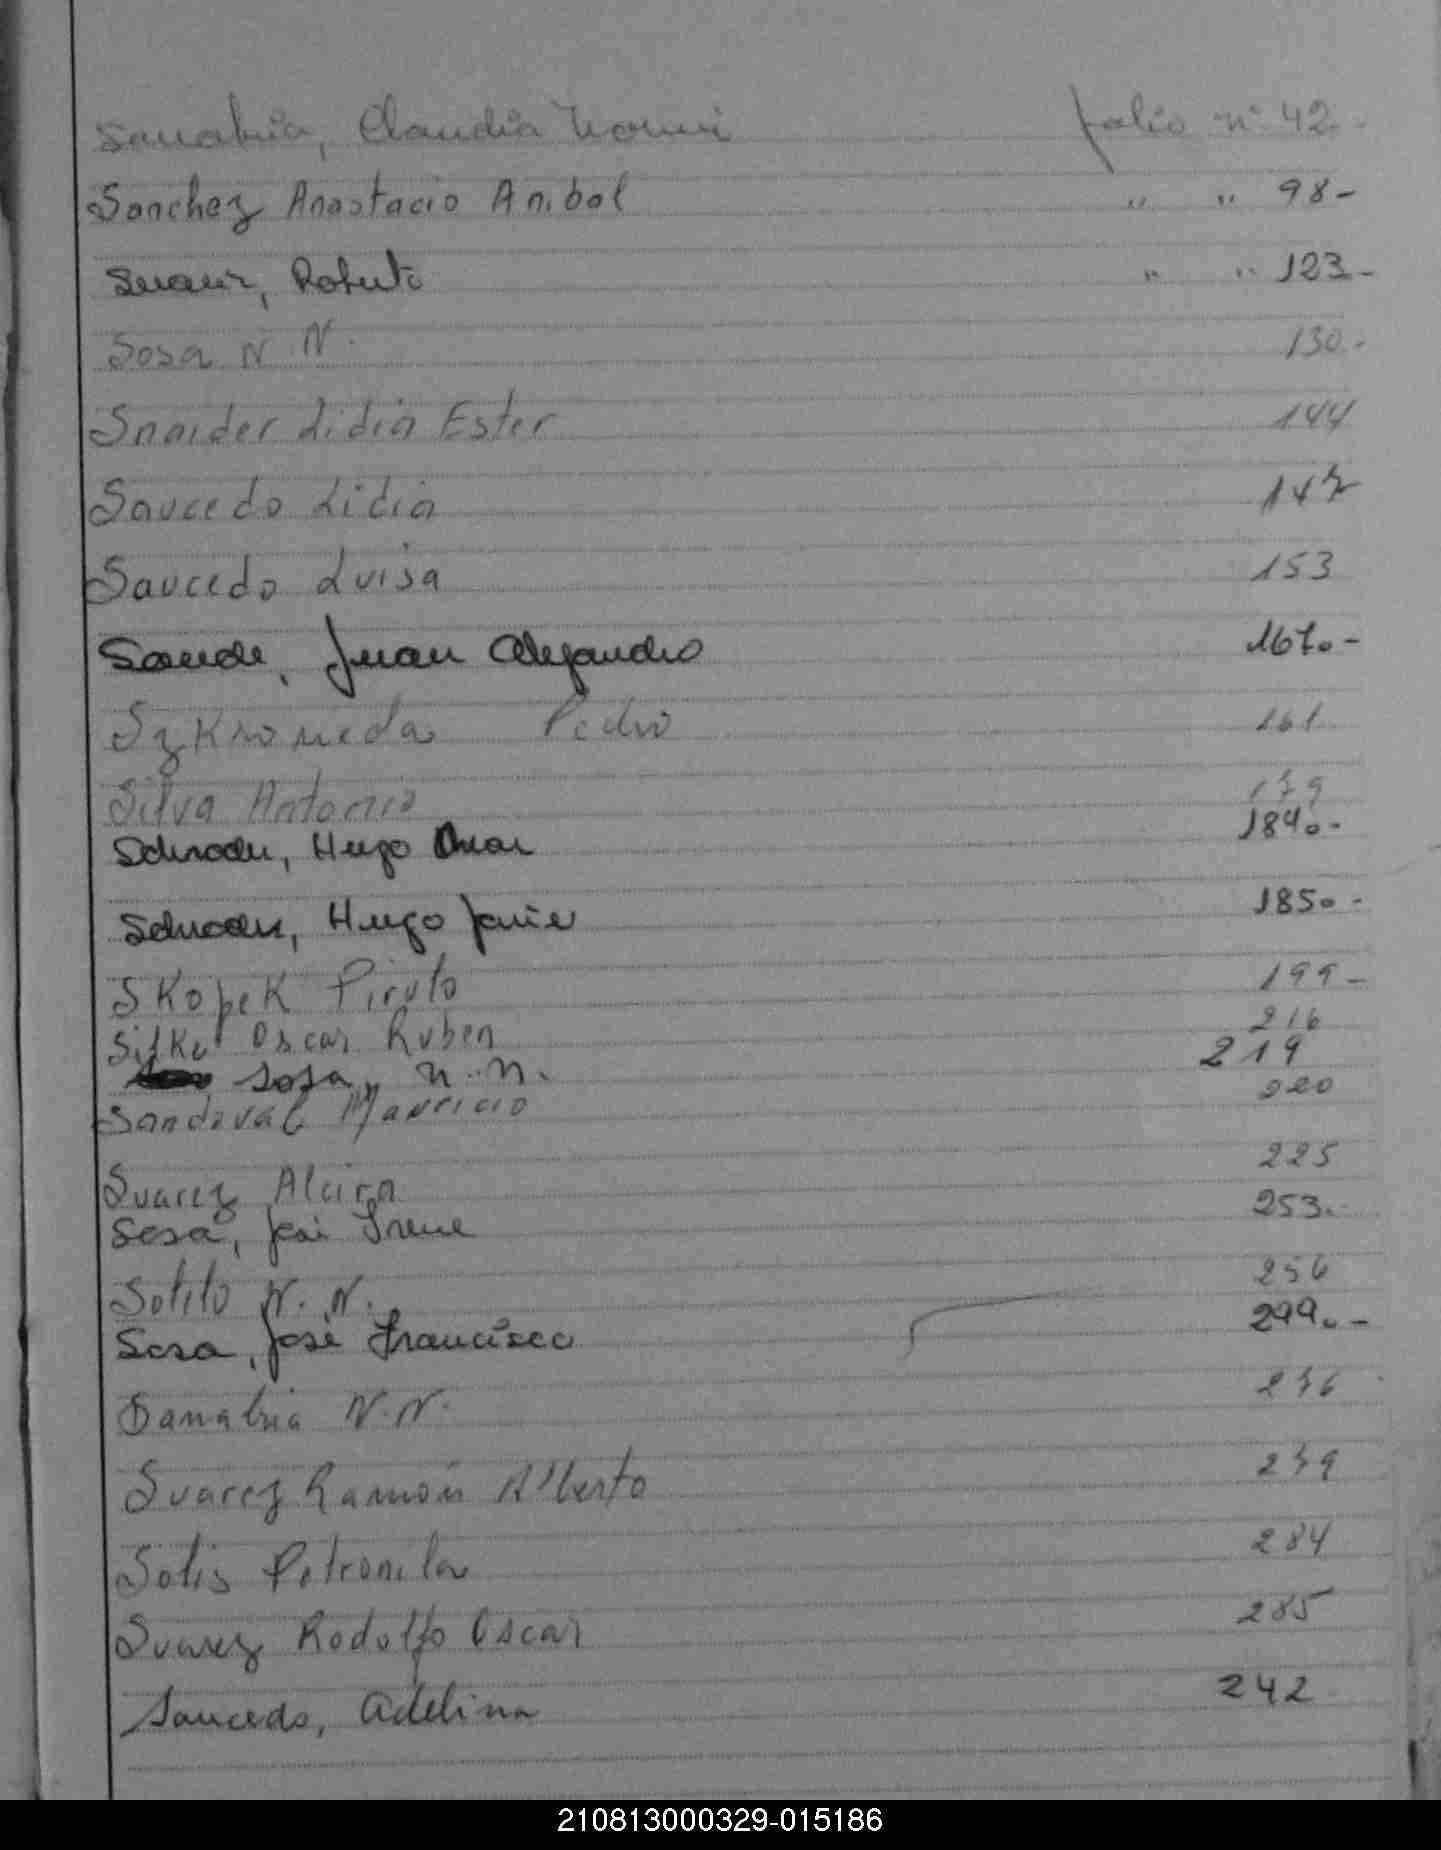 Sanabria, Claudia Noemi folio nº 42.-
Sanchez Anastacio Anibal " " 98-
Suarez, Roberto " " 123.-
Sosa N. N. 130.-
Snaider Lidia Ester 144
Saucedo Lidia 147
Saucedo Luisa 153
Juan Alejandro 167.-
Pedro 161
Silva Antonio 179
Schroder, Hugo Omar 184.-
Schroder, Hugo Javier 185.-
Skopek Piruto 199-
Oscar Ruben 216
Sosa, n. n. 219
Sandoval Mauricio 220
Suarez Alcira 225
Sosa, José Irene 253.-
Sotilo N. N. 256
Sosa, José Francisco 299.-
Sanabria N. N. 276
Suarez Ramón Alberto 279
Solis Petronila 284
Suarez Rodolfo Oscar 285
Saucedo, Adelina 242
210813000329-015186